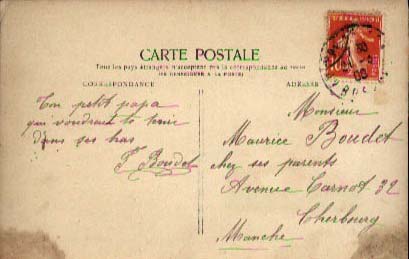 CARTE POSTALE
Tous les pays étrangers n'acceptent pas la correspondance au recto
(SE RENSEIGNER A LA POSTE)
CORRESPONDANCE
ADRESSE
Ton petit papa
qui voudrait te tenir
dans ses bras
F Boudet
Monsieur
Maurice Boudet
chez ses parents
Avenue Carnot 32
Cherbourg
Manche